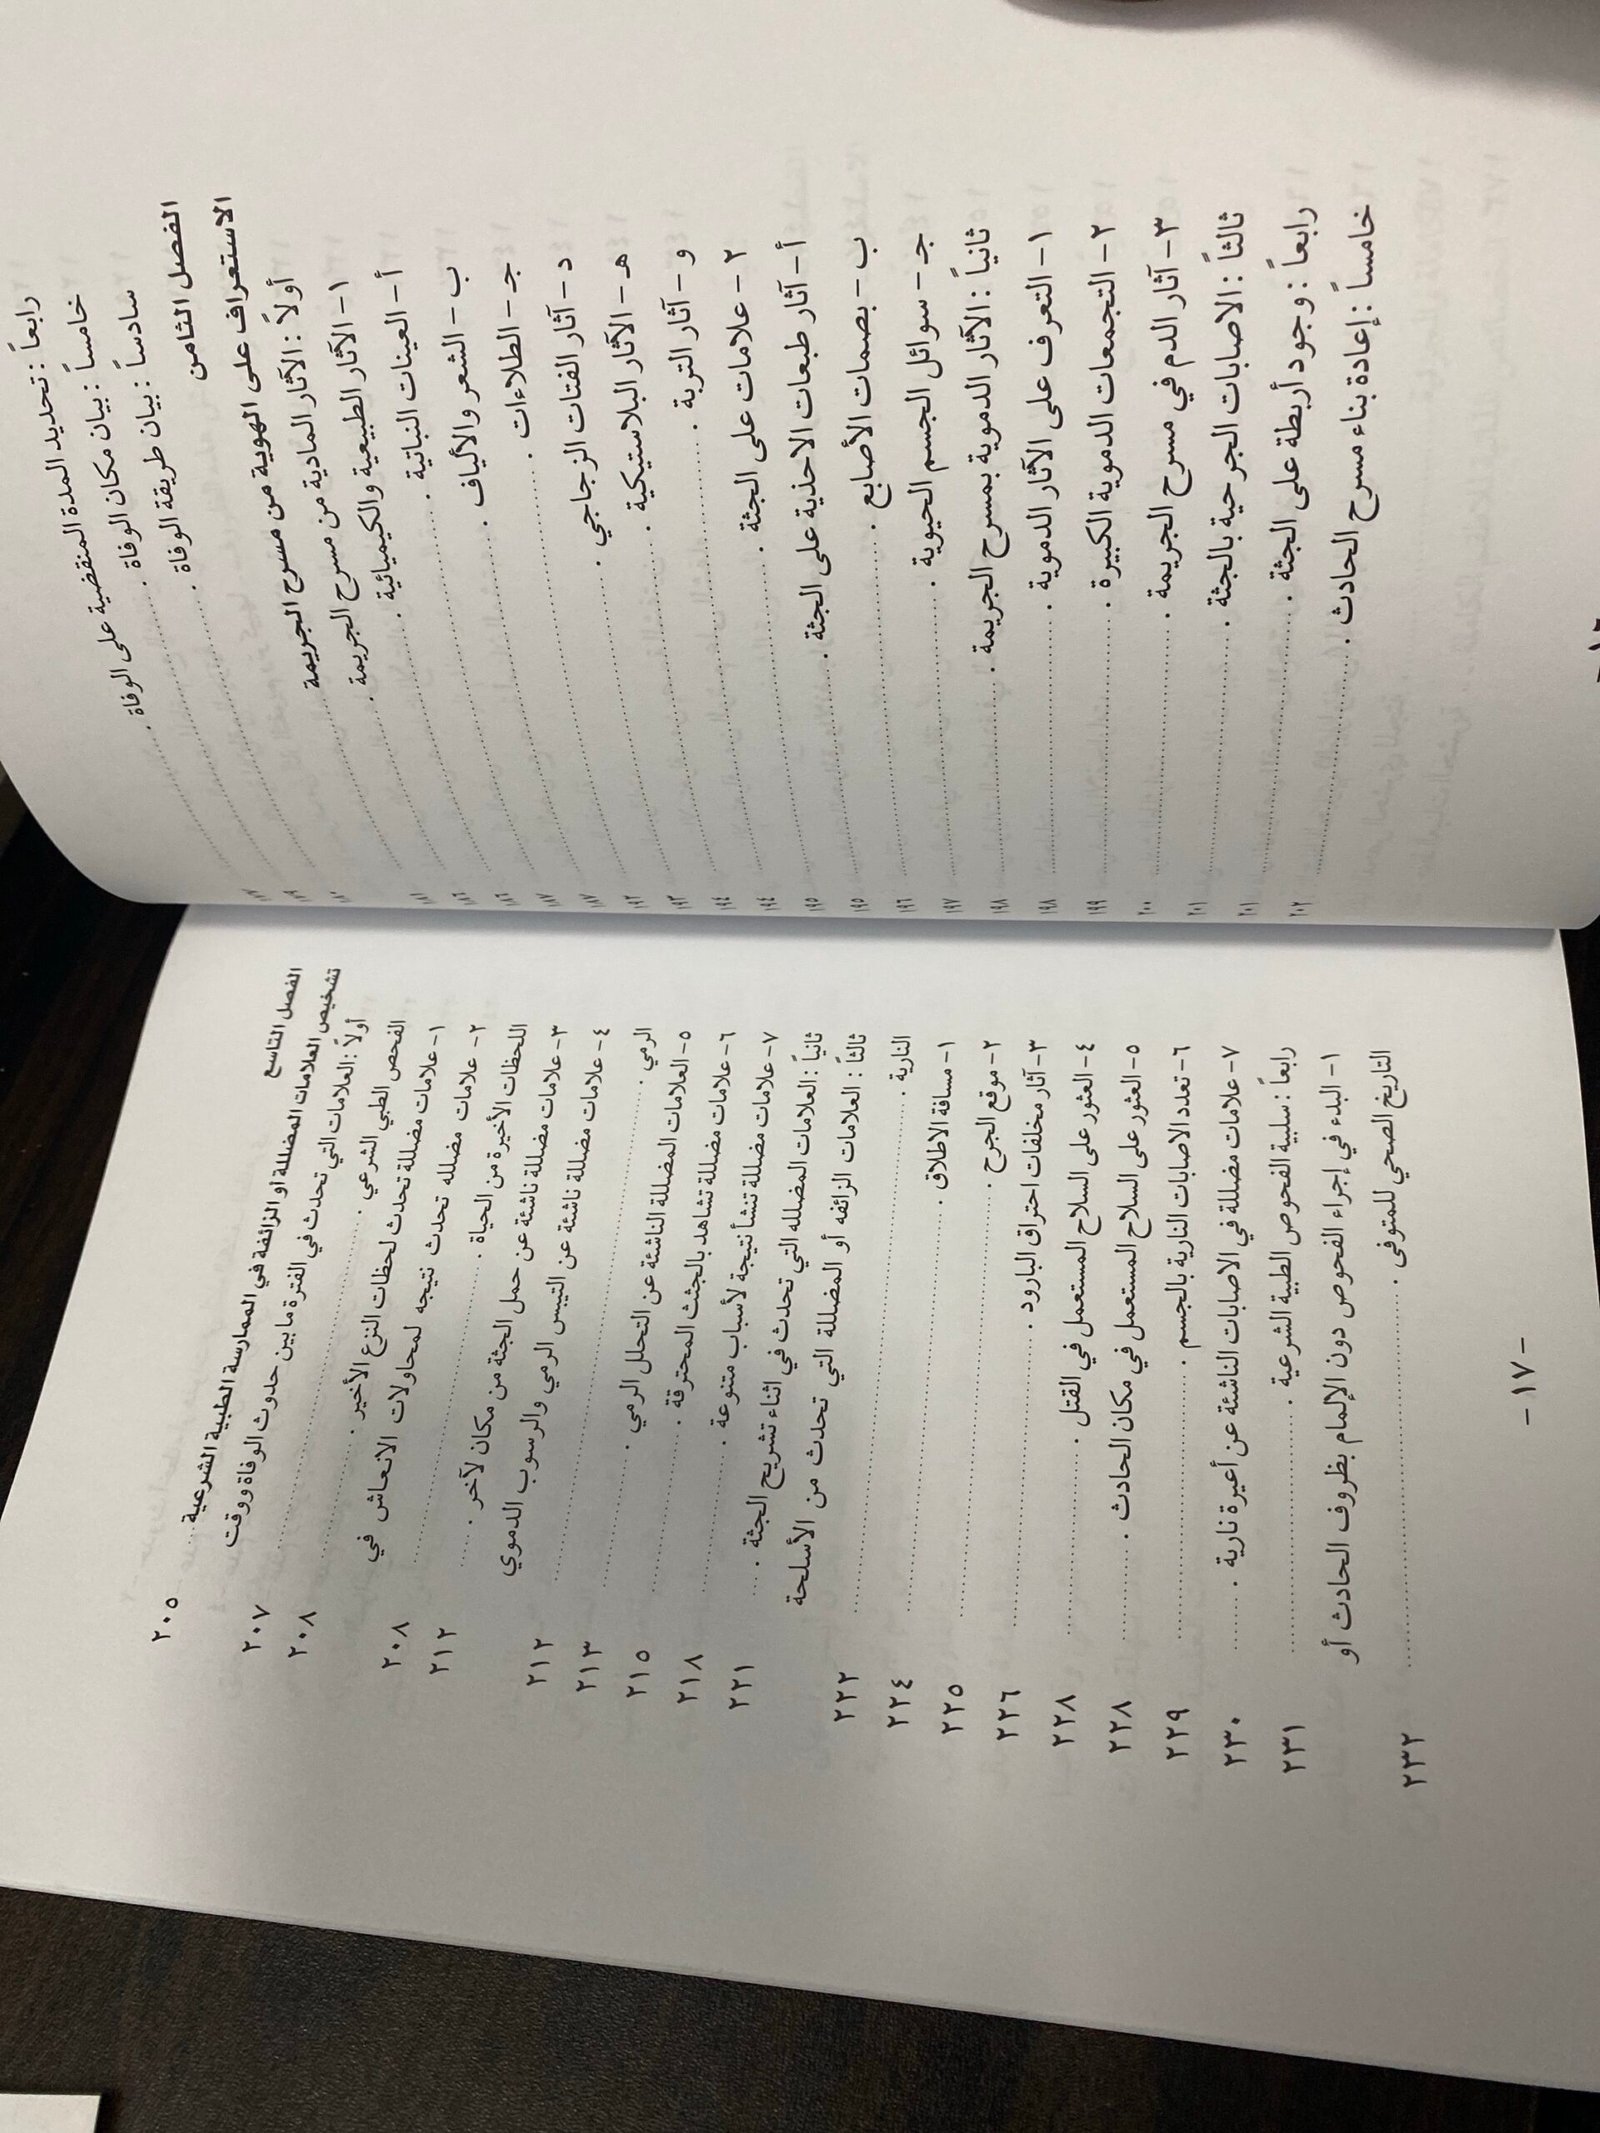 رابعاً : تحديد المدة المنقضية على الوفاة .
خامساً : بيان مكان الوفاة .
سادساً : بيان طريقة الوفاة .
الفصل الثامن
الاستعراف على الهوية من مسرح الجريمة
أولاً : الآثار المادية من مسرح الجريمة .
١- الآثار الطبيعية والكيميائية .
أ- العينات النباتية .
ب - الشعر والألياف .
جـ - الطلاءات .
د - آثار الفتات الزجاجي .
هـ - الآثار البلاستيكية .
و - آثار التربة .
٢ - علامات على الجثة .
أ- آثار طبعات الاحذية على الجثة .
ب - بصمات الأصابع .
جـ - سوائل الجسم الحيوية .
ثانياً : الآثار الدموية بمسرح الجريمة .
١- التعرف على الآثار الدموية .
٢- التجمعات الدموية الكبيرة .
٣- آثار الدم في مسرح الجريمة .
ثالثاً : الاصابات الجرحية بالجثة .
رابعاً : وجود أربطة على الجثة .
خامساً : إعادة بناء مسرح الحادث .
الفصل التاسع
تشخيص العلامات المضللة او الزائفة في الممارسة الطبية الشرعية ٢٠٥
أولاً : العلامات التي تحدث في الفترة ما بين حدوث الوفاة ووقت
الفحص الطبي الشرعي . ٢٠٧
١- علامات مضللة تحدث لحظات النزع الأخير . ٢٠٨
٢- علامات مضلله تحدث نتيجه لمحاولات الانعاش في
اللحظات الأخيرة من الحياة . ٢٠٨
٣- علامات مضللة ناشئة عن حمل الجثة من مكان لآخر . ٢١٢
٤- علامات مضللة ناشئة عن التيبس الرمي والرسوب الدموي
الرمي . ٢١٢
٥- العلامات المضللة الناشئة عن التحلل الرمي . ٢١٣
٦- علامات مضللة تشاهد بالجثث المحترقة . ٢١٥
٧- علامات مضللة تنشأ نتيجة لأسباب متنوعة . ٢١٨
ثانياً : العلامات المضلله التي تحدث في اثناء تشريح الجثة . ٢٢١
ثالثاً : العلامات الزائفه أو المضللة التي تحدث من الأسلحة
النارية . ٢٢٢
١- مسافة الاطلاق . ٢٢٤
٢- موقع الجرح . ٢٢٥
٣- آثار مخلفات احتراق البارود . ٢٢٦
٤- العثور على السلاح المستعمل في القتل . ٢٢٨
٥- العثور على السلاح المستعمل في مكان الحادث . ٢٢٨
٦- تعدد الاصابات النارية بالجسم . ٢٢٩
٧- علامات مضللة في الاصابات الناشئة عن أعيرة نارية . ٢٣٠
رابعاً : سلبية الفحوص الطبية الشرعية . ٢٣١
١- البدء في إجراء الفحوص دون الإلمام بظروف الحادث أو
التاريخ الصحي للمتوفى . ٢٣٢
- ١٧ -